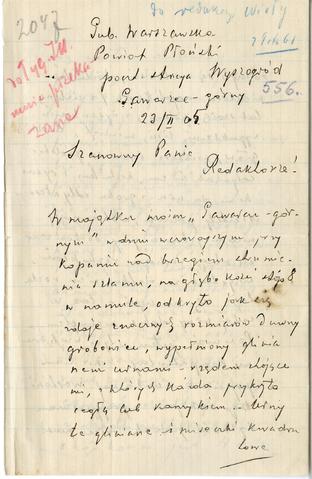 do redakcyi Wisły
204
556.
Gub. Warszawska
Powiat Płoński
poczt. stacya Wyszogród
Gawarzec-górny
23/II 05
Szanowny Panie
Redaktorze!
W majątku moim „Gawarzec-gór-
nym" w dniu wczorajszym, przy
kopaniu nad brzegiem strumie-
nia szlamu, na głębokości stóp 8
w namule, odkryto jak się
zdaje znacznych rozmiarów dawny
grobowiec, wypełniony glinia
nemi urnami - rzędem stojące
mi, z których każda przykryta
cegłą lub kamykiem. Urny
te gliniane i miseczki kwadra
towe